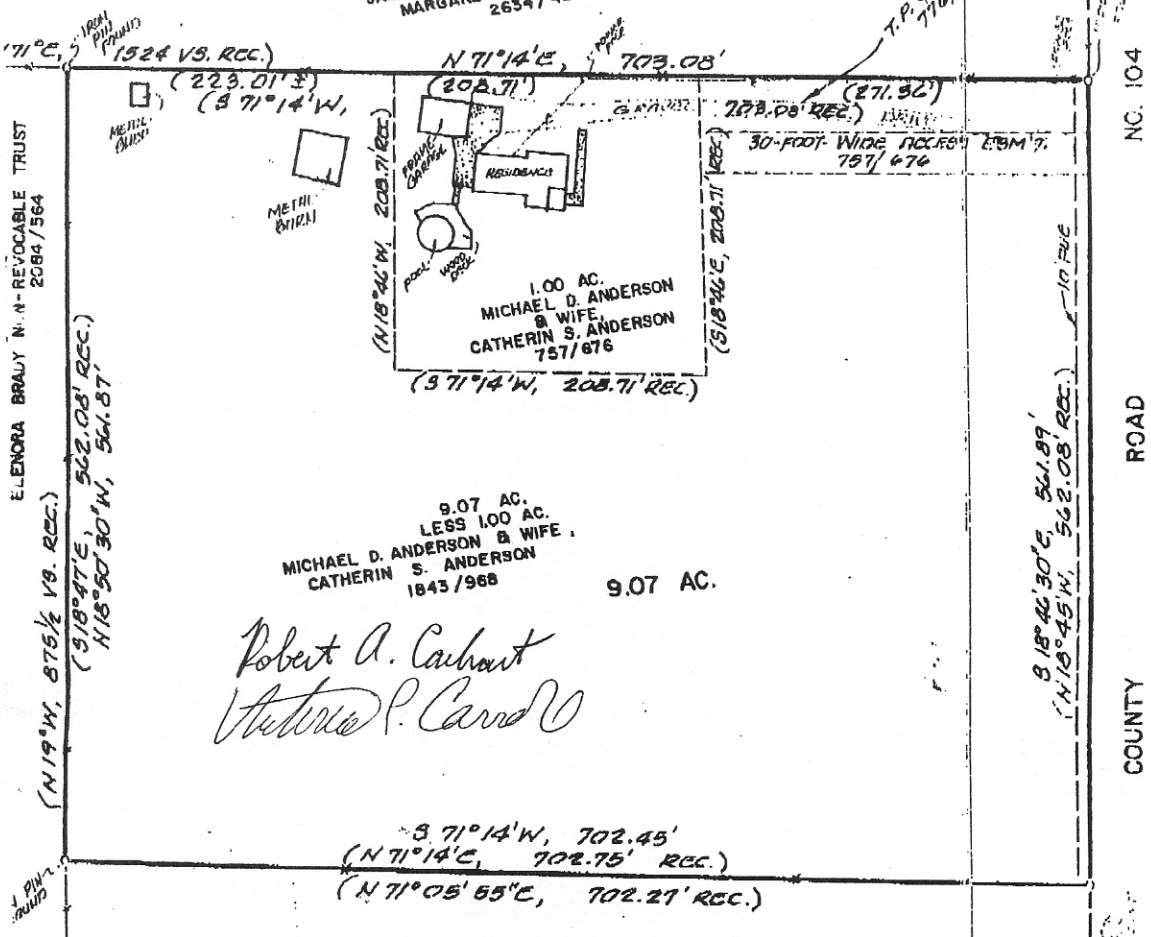 2634/
IRON
PIN
FOUND
(1524 VS. REC.)
N 71°14'E, 703.08'
(223.01' ±)
(S 71°14'W,
(208.71')
(271.36')
703.08' REC.)
30-FOOT-WIDE ACCESS ESM'T.
757/676
METAL
BARN
METAL
BARN
FRAME
GARAGE
RESIDENCE
POOL
WOOD
DECK
POWER
POLE
(N 18°46'W, 208.71' REC)
(S 18°46'E, 208.71' REC)
1.00 AC.
MICHAEL D. ANDERSON
& WIFE,
CATHERIN S. ANDERSON
757/676
(S 71°14'W, 208.71' REC.)
ELENORA BRADY
REVOCABLE TRUST
2084/564
(N 19°W, 875 1/2 VS. REC.)
(S 18°47'E, 562.08' REC.)
N 18°50'30"W, 561.87'
9.07 AC.
LESS 1.00 AC.
MICHAEL D. ANDERSON & WIFE,
CATHERIN S. ANDERSON
1843/968
9.07 AC.
Robert A. Carhart
Victoria P. Carroll
S 18°46'30"E, 561.89'
(N 18°45'W, 562.08' REC.)
10' PUE
COUNTY ROAD NO. 104
S 71°14'W, 702.45'
(N 71°14'E, 702.75' REC.)
(N 71°05'55"E, 702.27' REC.)